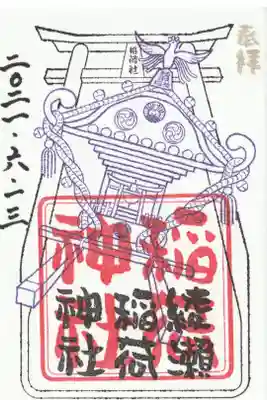 奉拝
稲荷社
綾瀬
稲荷
神社
二〇二一・六・一三